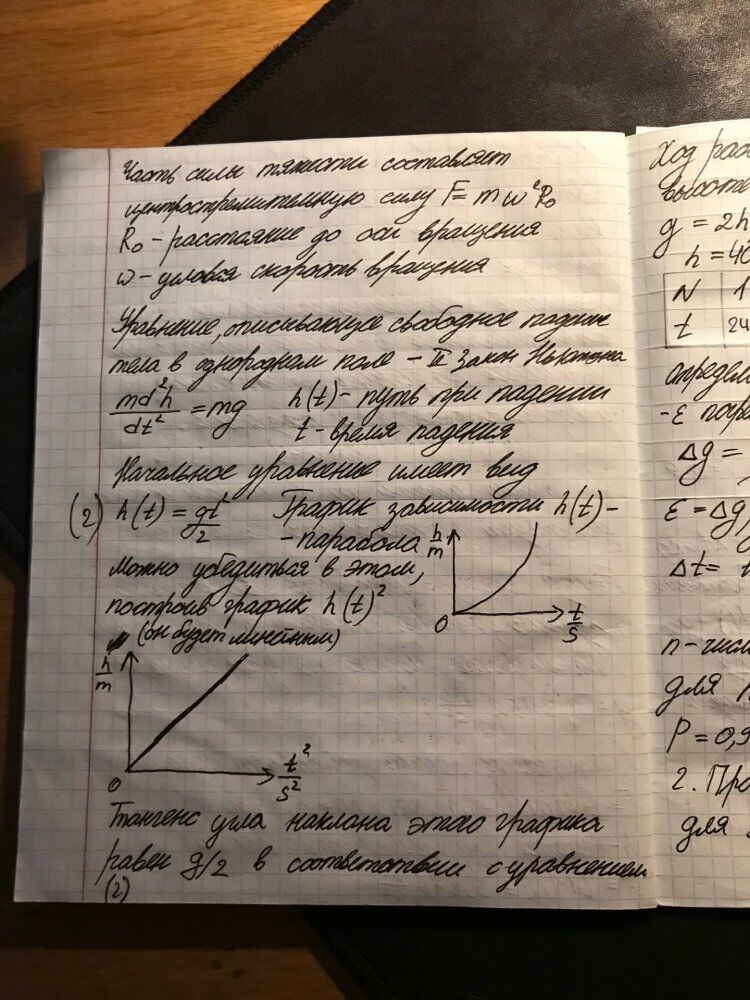 Часть силы тяжести составляет
центростремительную силу F = mω²R₀
R₀ - расстояние до оси вращения
ω - угловая скорость вращения
Уравнение, описывающее свободное падение
тела в однородном поле - II закон Ньютона
md²h/dt² = mg h(t) - путь при падении
t - время падения
Начальное уравнение имеет вид
(2) h(t) = gt²/2 График зависимости h(t) -
- парабола
Можно убедиться в этом,
построив график h(t)²
(он будет линейным)
h/m
0
t/s
h/m
0
t²/s²
Тангенс угла наклона этого графика
равен g/2 в соответствии с уравнением
(2)
Ход раб
высота
g = 2h
h = 40
N 1
t 24
определ
- ε погр
Δg =
ε = Δg
Δt =
n - числ
для
P = 0,9
2. Про
для